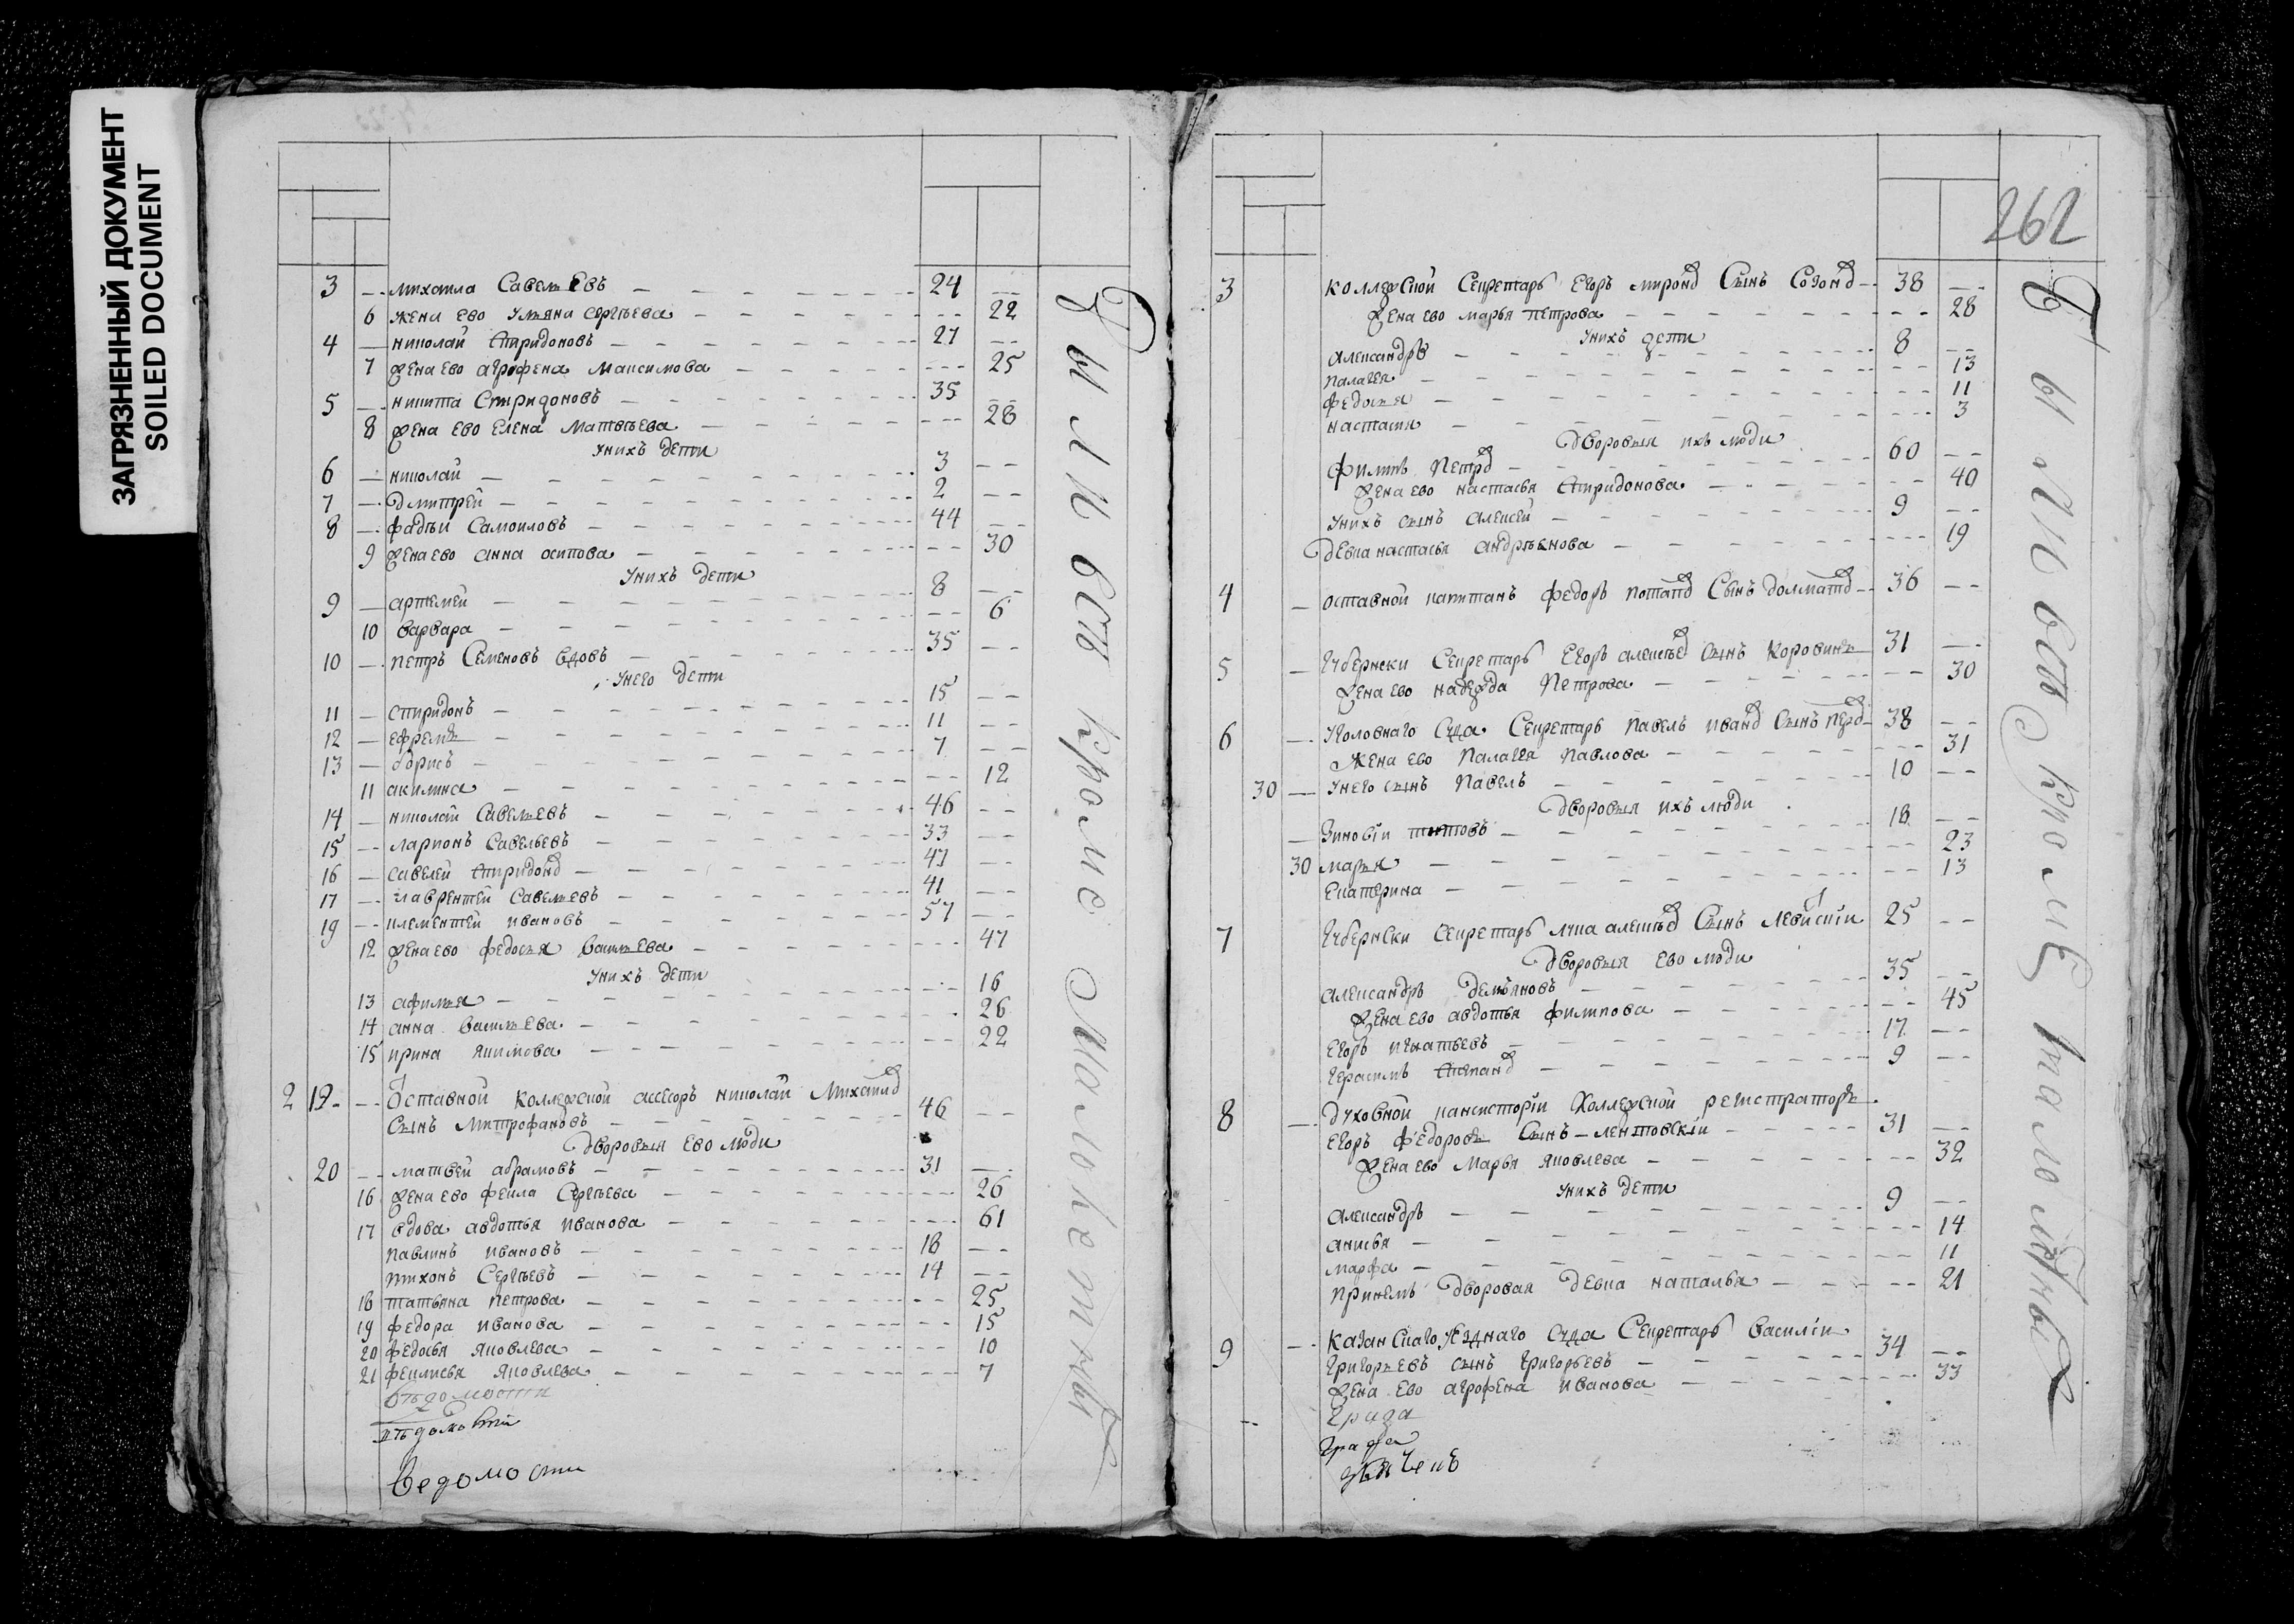 ЗАГРЯЗНЕННЫЙ ДОКУМЕНТ
SOILED DOCUMENT
3 — михаила Савельевъ 24
6 жена ево Ульяна сергѣева 22
4 — николай спиридоновъ 27
7 жена ево агрофена Максимова 25
5 — никита Спиридоновъ 35
8 жена ево Елена Матвѣева 28
Унихъ дети
6 — николай 3
7 — дмитрей 2
8 — фадѣи Самоиловъ 44
9 жена ево анна осипова 30
Унихъ дети
9 — артемей 8
10 варвара 6
10 — петръ Семеновъ вдовъ 35
Унего дети
11 — спиридонъ 15
12 — ефремъ 11
13 — борисъ 7
11 акилина 12
14 — николай Савельевъ 46
15 — ларионъ Савельевъ 33
16 — савелей спиридоно 47
17 — лаврентей Савельевъ 41
19 — клементей ивановъ 57
12 жена ево федосья васильева 47
Унихъ дети
13 афимья 16
14 анна васильева 26
15 ирина якимова 22
2 19 — Оставной коллежской ассесоръ николай Михаило
Сынъ Митрофановъ 46
дворовыя ево люди
20 — матвей абрамовъ 31
16 жена ево фекла Сергѣева 26
17 вдова авдотья иванова 61
павлинъ ивановъ 18
тихонъ Сергѣевъ 14
18 татьяна петрова 25
19 федора иванова 15
20 федосья яковлева 10
21 фенлисья яковлева 7
вѣдомости
вѣдомости
ведомости
Были восп кроме Малолетныхъ
262
3 коллежской Секретарь Егоръ мироно Сынъ Созоно 38
жена ево марья петрова 28
Унихъ дети
александръ 8
палагея 13
федосья 11
настасия 3
дворовыя ихъ люди
филипъ петро 60
жена ево настасья спиридонова 40
Унихъ сынъ алексей 9
девка настасья андрѣянова 19
4 — оставной капитанъ федоръ потапо Сынъ долмато 36
5 — Губернски Секретарь Егоръ алексѣе сынъ коровинъ 31
жена ево надежда петрова 30
6 — Уголовнаго Суда Секретарь павелъ ивано Сынъ перо 38
Жена ево палагея павлова 31
30 — Унего сынъ павелъ 10
дворовыя ихъ люди
— Зиновѣи титовъ 18
30 марья 23
Екатерина 13
7 Губернски секретарь лука алексѣе Сынъ левитски 25
дворовыя ево люди
александръ демьяновъ 35
жена ево авдотья филипова 45
Егоръ игнатьевъ 17
герасимъ степано 9
8 — духовной кансисторіи коллежской регистраторъ
Егоръ федоровъ Сынъ-лентовскіи 31
жена ево марья яковлева 32
Унихъ дети
александръ 9
анисья 14
марфа 11
принемъ дворовая девка наталья 21
9 — казанскаго Уезднаго Суда Секретарь василіи
григорьевъ сынъ григорьевъ 34
жена ево агрофена иванова 33
града
града
Были восп кроме малолѣтныхъ